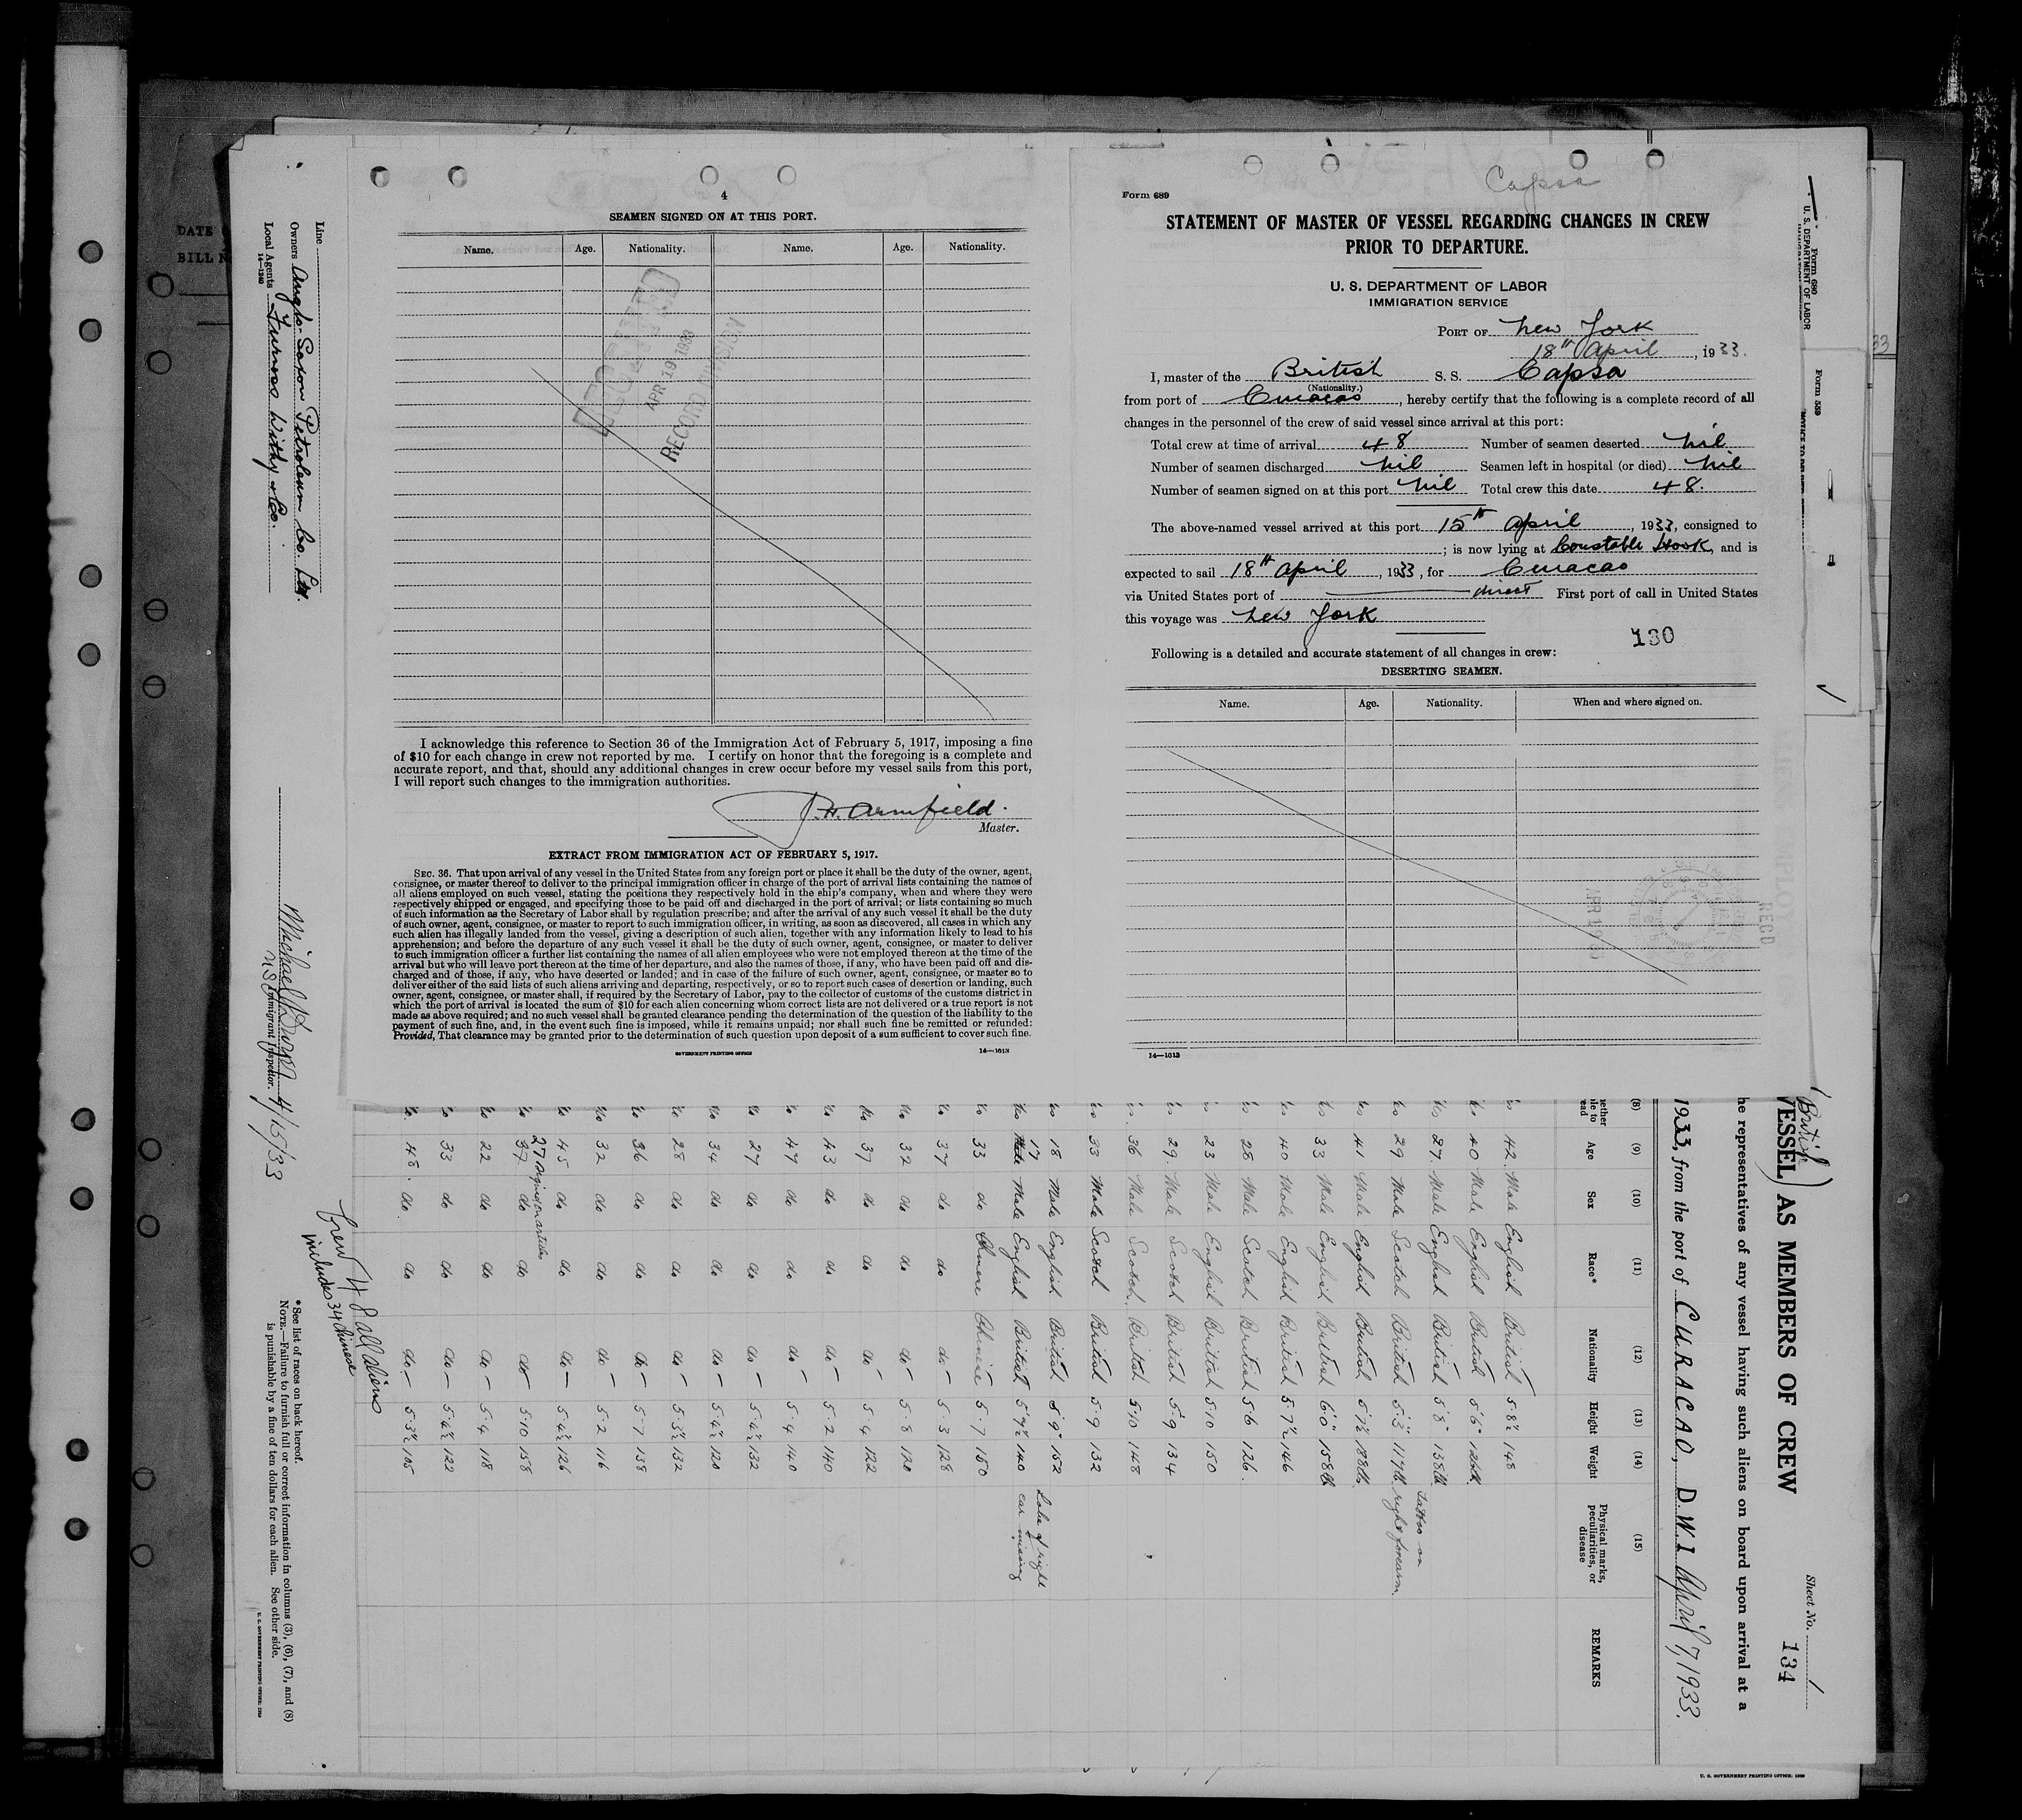 4
SEAMEN SIGNED ON AT THIS PORT.
Name. Age. Nationality. Name. Age. Nationality.
APR 19 1933
RECORD DIVISION
I acknowledge this reference to Section 36 of the Immigration Act of February 5, 1917, imposing a fine
of $10 for each change in crew not reported by me. I certify on honor that the foregoing is a complete and
accurate report, and that, should any additional changes in crew occur before my vessel sails from this port,
I will report such changes to the immigration authorities.
Armfield.
Master.
EXTRACT FROM IMMIGRATION ACT OF FEBRUARY 5, 1917.
SEC. 36. That upon arrival of any vessel in the United States from any foreign port or place it shall be the duty of the owner, agent,
consignee, or master thereof to deliver to the principal immigration officer in charge of the port of arrival lists containing the names of
all aliens employed on such vessel, stating the positions they respectively hold in the ship's company, when and where they were
respectively shipped or engaged, and specifying those to be paid off and discharged in the port of arrival; or lists containing so much
of such information as the Secretary of Labor shall by regulation prescribe; and after the arrival of any such vessel it shall be the duty
of such owner, agent, consignee, or master to report to such immigration officer, in writing, as soon as discovered, all cases in which any
such alien has illegally landed from the vessel, giving a description of such alien, together with any information likely to lead to his
apprehension; and before the departure of any such vessel it shall be the duty of such owner, agent, consignee, or master to deliver
to such immigration officer a further list containing the names of all alien employees who were not employed thereon at the time of the
arrival but who will leave port thereon at the time of her departure, and also the names of those, if any, who have been paid off and dis-
charged and of those, if any, who have deserted or landed; and in case of the failure of such owner, agent, consignee, or master so to
deliver either of the said lists of such aliens arriving and departing, respectively, or so to report such cases of desertion or landing, such
owner, agent, consignee, or master shall, if required by the Secretary of Labor, pay to the collector of customs of the customs district in
which the port of arrival is located the sum of $10 for each alien concerning whom correct lists are not delivered or a true report is not
made as above required; and no such vessel shall be granted clearance pending the determination of the question of the liability to the
payment of such fine, and, in the event such fine is imposed, while it remains unpaid; nor shall such fine be remitted or refunded:
Provided, That clearance may be granted prior to the determination of such question upon deposit of a sum sufficient to cover such fine.
GOVERNMENT PRINTING OFFICE
14—1013
Capsa
Form 689
STATEMENT OF MASTER OF VESSEL REGARDING CHANGES IN CREW
PRIOR TO DEPARTURE.
U. S. DEPARTMENT OF LABOR
IMMIGRATION SERVICE
PORT OF New York
18th April, 1933.
I, master of the British S. S. Capsa
(Nationality.)
from port of Curacao, hereby certify that the following is a complete record of all
changes in the personnel of the crew of said vessel since arrival at this port:
Total crew at time of arrival 48 Number of seamen deserted nil
Number of seamen discharged nil Seamen left in hospital (or died) nil
Number of seamen signed on at this port nil Total crew this date 48.
The above-named vessel arrived at this port 15th April, 1933, consigned to
; is now lying at Constable Hook, and is
expected to sail 18th April, 1933, for Curacao
via United States port of direct First port of call in United States
this voyage was New York
130
Following is a detailed and accurate statement of all changes in crew:
DESERTING SEAMEN.
Name. Age. Nationality. When and where signed on.
REC'D
14—1013
Form 680
U. S. DEPARTMENT OF LABOR
Form 559
Sheet No. 1
134
(British)
VESSEL AS MEMBERS OF CREW
he representatives of any vessel having such aliens on board upon arrival at a
1933, from the port of CURACAO, D.W.I April 7, 1933.
(8) (9) (10) (11) (12) (13) (14) (15)
Age Sex Race* Nationality Height Weight Physical marks, peculiarities, or disease REMARKS
42. Male English British 5.8½ 148
40 Male English British 5'6" 126lb
27. Male English British 5'8" 138lb
29 Male Scotch British 5'3" 117lb Tattoo on right forearm.
41 Male English British 5.7½ 188lb
33 Male English British 6'0" 158lb
40 Male English British 5.7½ 146
28 Male Scotch British 5.6 126.
23 Male English British 5.10 150
29. Male Scotch British 5.9 134
36 Male Scotch. British 5.10 148
33 Male Scotch British 5.9 132
18 Male English British 5.9" 152
17 Male English British 5.9½ 140 Lobe of right ear missing
33 do Chinese Chinese 5.7 150
37 do do do 5.3 128
32 do do do 5.8 120
37 do do do 5.4 122
43 do do do 5.2 140
47 do do do 5.4 140
27 do do do 5.4½ 132
34 do do do 5.4½ 120
28 do do do 5.3½ 132
36 do do do 5.7 138
32 do do do 5.2 116
45 do do do 5.4½ 126
27 Signed on articles
37 do do do 5.10 158
22 do do do 5.4 118
33 do do do 5.4½ 122
48. do. do do 5.3½ 105
Crew 48 all aliens
includes 34 Chinese
*See list of races on back hereof.
NOTE.—Failure to furnish full or correct information in columns (3), (6), (7), and (8)
is punishable by a fine of ten dollars for each alien. See other side.
Line
Owners Anglo-Saxon Petroleum Co. Ltd.
Local Agents Furness Withy & Co.
14—1240
Michael 4/15/33
US Immigrant Inspector.
DATE
BILL N
33
U. S. GOVERNMENT PRINTING OFFICE: 1932